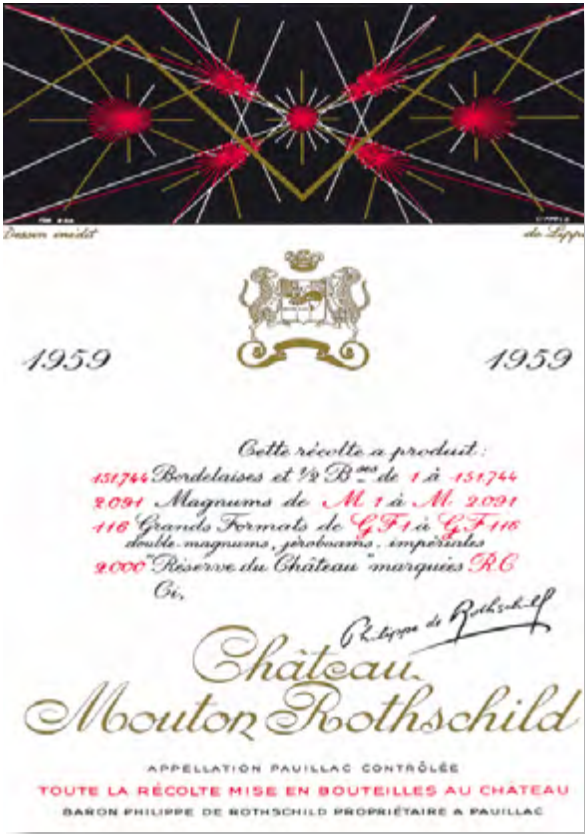 Dessin inédit de Lipp
1959 1959
Cette récolte a produit :
151,744 Bordelaises et 1/2 Bses de 1 à 151,744
2.091 Magnums de M 1 à M 2.091
116 Grands Formats de G F 1 à G F 116
double-magnums, jéroboams, impériales
2.000 "Réserve du Château" marquées R.C
Ci,
Philippe de Rothschild
Château
Mouton Rothschild
APPELLATION PAUILLAC CONTRÔLÉE
TOUTE LA RÉCOLTE MISE EN BOUTEILLES AU CHÂTEAU
BARON PHILIPPE DE ROTHSCHILD PROPRIÉTAIRE A PAUILLAC